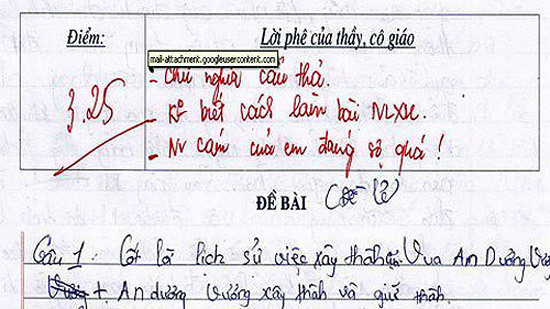 Điểm:
Lời phê của thầy, cô giáo
mail-attachment.googleusercontent.com
3,25
- Chữ nghĩa cẩu thả.
- K° biết cách làm bài NLXH.
- NV cảm của em đáng sợ quá!
ĐỀ BÀI
Câu 1. Cốt lõi lịch sử việc xây thành, Vua An Dương Vư
+ An dương vương xây thành và giữ thành.